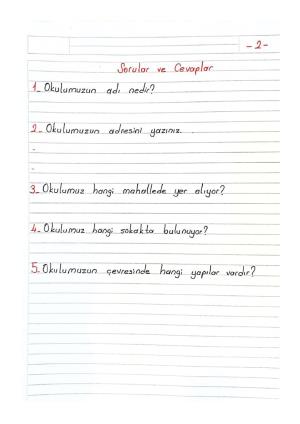 - 2 -
Sorular ve Cevaplar
1_ Okulumuzun adı nedir?
2_ Okulumuzun adresini yazınız.
-
-
3_ Okulumuz hangi mahallede yer alıyor?
4_ Okulumuz hangi sokakta bulunuyor?
5_ Okulumuzun çevresinde hangi yapılar vardır?